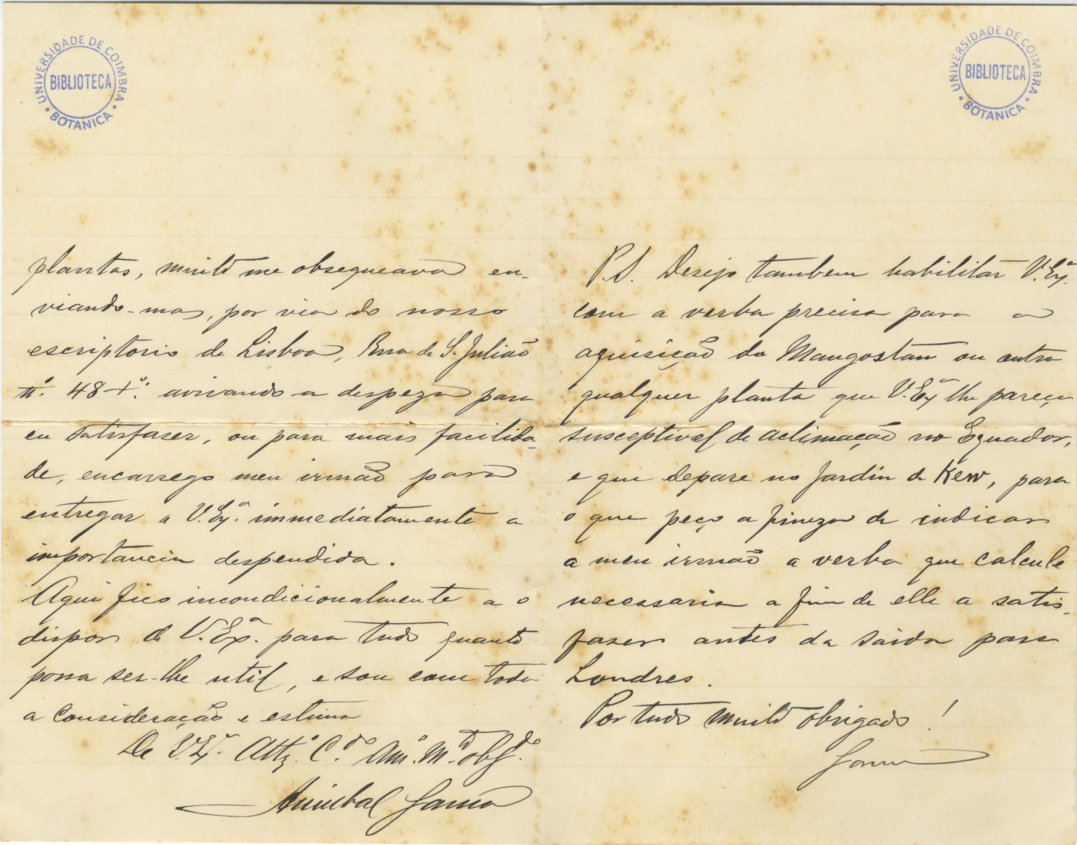 UNIVERSIDADE DE COIMBRA
BIBLIOTECA
BOTANICA
plantas, muito me obsequeava en-
viando-mas, por via do nosso
escriptorio de Lisboa, Rua de S. Julião
nº. 48-1º: avisando a despeza para
eu satisfaser, ou para mais facilida
de, encarrego meu irmão para
entregar a V. Exª. immediatamente a
importancia despendida.
Aqui fico incondicionalmente a o
dispor de V. Exª. para tudo quanto
possa ser-lhe util, e sou com toda
a consideração e estima
De V. Exª. Attº. C.do Amº. M.to obg.do
Annibal Gama
UNIVERSIDADE DE COIMBRA
BIBLIOTECA
BOTANICA
P.S. Desejo tambem habilitar V. Exª.
com a verba precisa para a
aquisição do Mangostan ou outra
qualquer planta que V. Exª lhe pareça
susceptivel de aclimação no Equador,
e que depare no Jardin de Kew, para
o que peço a fineza de indicar
a meu irmão a verba que calcule
necessaria a fim de elle a satis-
fazer antes da saida para
Londres.
Por tudo muito obrigado!
Gama